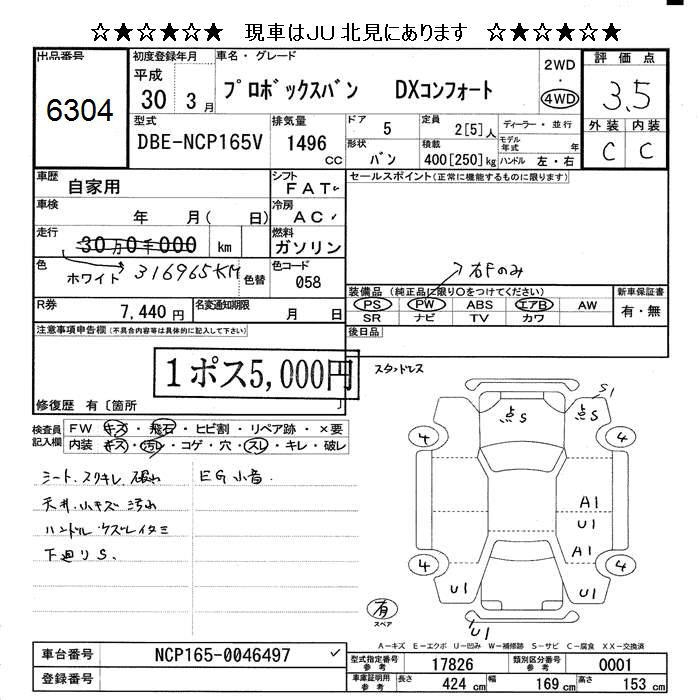 ☆★☆★☆★ 現車はJU北見にあります ☆★☆★☆★
出品番号
6304
初度登録年月
平成
30 3月
車名・グレード
プロボックスバン DXコンフォート
2WD
・
4WD
評価点
3.5
外装 内装
C C
型式
DBE-NCP165V
排気量
1496
CC
ドア
5
形状
バン
定員
2[5]人
積載
400[250]kg
ディーラー・並行
モデル年式 年
ハンドル 左・右
車歴
自家用
シフト
FAT
車検
年 月( 日)
冷房
AC
走行
30万0千000 km
燃料
ガソリン
色
ホワイト
316965KM
色替
色コード
058
R券
7,440円
名変通知期限
月 日
セールスポイント(正常に機能するものに限ります)
右Fのみ
装備品 (純正品に限り○をつけてください)
PS PW ABS エアB AW
SR ナビ TV カワ
新車保証書
有・無
後日品
注意事項申告欄(不具合内容等は具体的に記入して下さい)
1ポス5,000円
修復歴 有〔箇所 〕
検査員記入欄
FW キズ・飛石・ヒビ割・リペア跡・×要
内装 キズ・汚れ・コゲ・穴・スレ・キレ・破レ
シート.スワキレ.破れ
天井.小キズ 汚れ
ハンドル.ウズレイタミ
下廻りS.
EG小音.
スタッドレス
点S
点S
S1
4
4
A1
U1
A1
4
4
U1
U1
U1
有
スペア
A-キズ E-エクボ U-凹み W-補修跡 S-サビ C-腐食 XX-交換済
車台番号
NCP165-0046497
登録番号
型式指定番号参考
17826
類別区分番号参考
0001
車庫証明用参考
長さ 424cm
幅 169cm
高さ 153cm